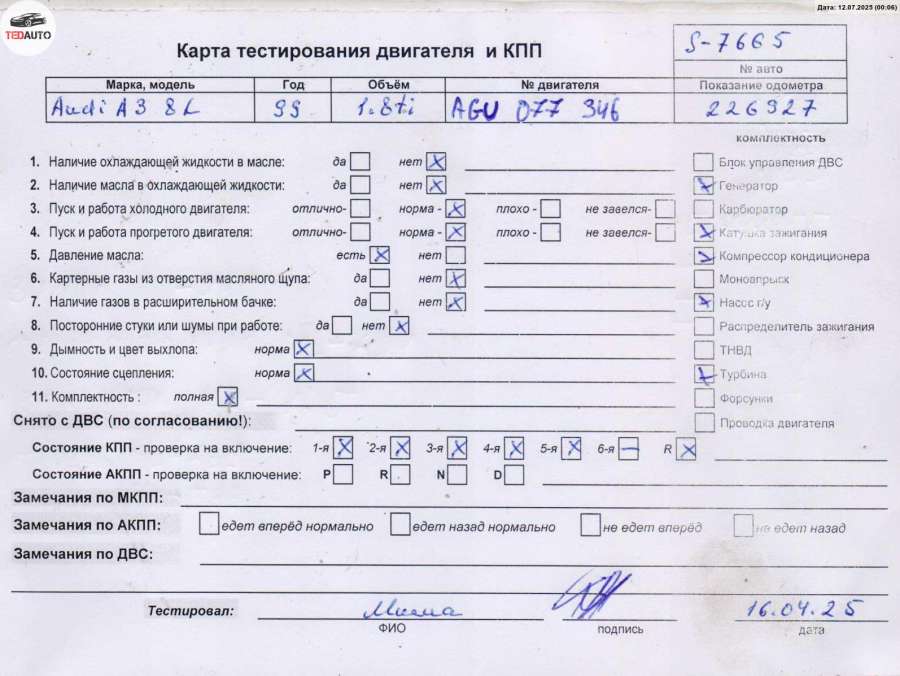 Дата: 12.07.2025 (00:06)
TEDAUTO
Карта тестирования двигателя и КПП
S-7665
№ авто
Марка, модель Год Объём № двигателя Показание одометра
Audi A3 8L 99 1.8ti AGU 077 346 226927
комплектность
1. Наличие охлаждающей жидкости в масле: да нет X
Блок управления ДВС
2. Наличие масла в охлаждающей жидкости: да нет X
Генератор
3. Пуск и работа холодного двигателя: отлично- норма - X плохо - не завелся-
Карбюратор
4. Пуск и работа прогретого двигателя: отлично- норма - X плохо - не завелся-
Катушка зажигания
5. Давление масла: есть X нет
Компрессор кондиционера
6. Картерные газы из отверстия масляного щупа: да нет X
Моновпрыск
7. Наличие газов в расширительном бачке: да нет X
Насос г/у
8. Посторонние стуки или шумы при работе: да нет X
Распределитель зажигания
9. Дымность и цвет выхлопа: норма X
ТНВД
10. Состояние сцепления: норма X
Турбина
11. Комплектность : полная X
Форсунки
Снято с ДВС (по согласованию!):
Проводка двигателя
Состояние КПП - проверка на включение: 1-я X 2-я X 3-я X 4-я X 5-я X 6-я — R X
Состояние АКПП - проверка на включение: P R N D
Замечания по МКПП:
Замечания по АКПП: едет вперёд нормально едет назад нормально не едет вперёд не едет назад
Замечания по ДВС:
Тестировал: Миша 16.04.25
ФИО подпись дата